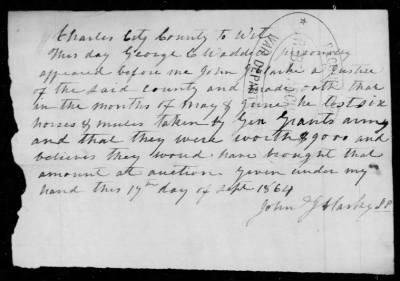 Charles City County to Wit
This day George E Waddill personally
appeared before me John J Clarke a Justice
of the said county and made oath that
in the months of May & June he lost six
horses & mules taken by Gen Grants army
and that they were worth $9000 and
believes they would have brought that
amount at auction Given under my
hand this 17th day of Sept 1864
John J Clarke J P
WAR DEPART